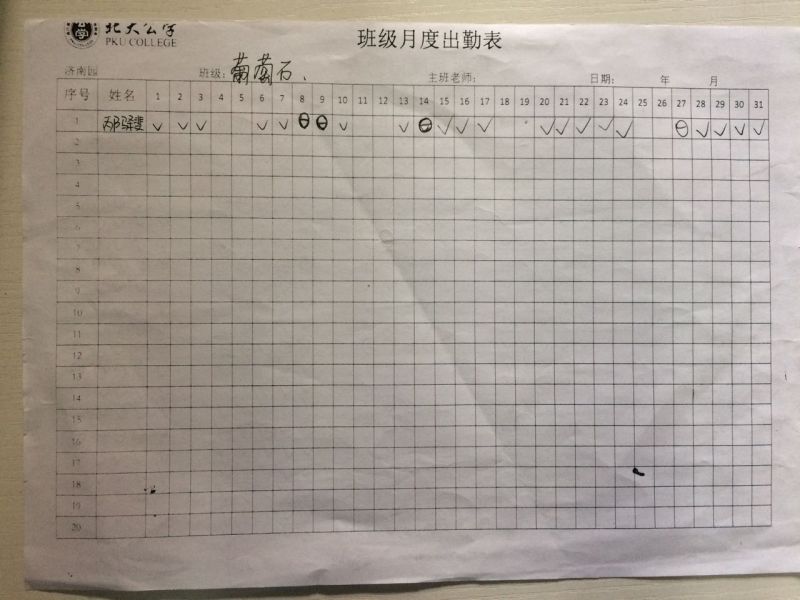 北大公学
PKU COLLEGE
班级月度出勤表
济南园 班级: 葡萄石、 主班老师: 日期: 年 月
序号 姓名 1 2 3 4 5 6 7 8 9 10 11 12 13 14 15 16 17 18 19 20 21 22 23 24 25 26 27 28 29 30 31
1 ✓ ✓ ✓ ✓ ✓ ⊖ ⊖ ✓ ✓ ⊖ ✓ ✓ ✓ ✓ ✓ ✓ ✓ ✓ ⊖ ✓ ✓ ✓ ✓
2
3
4
5
6
7
8
9
10
11
12
13
14
15
16
17
18
19
20